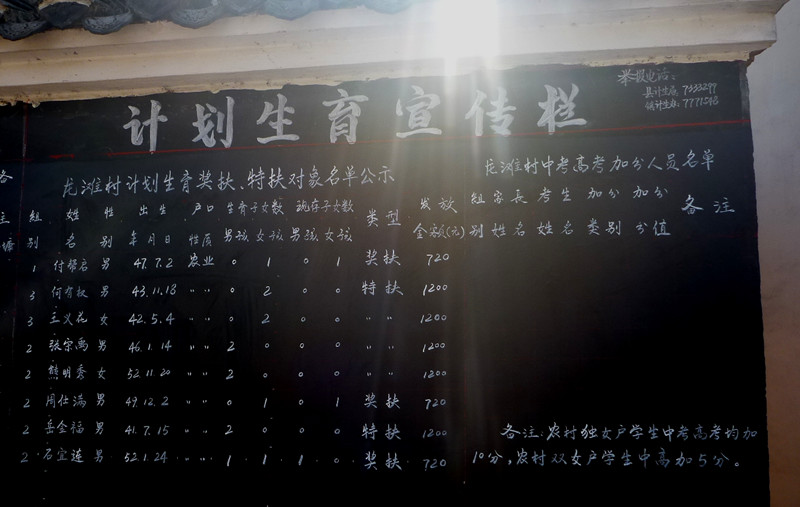 计划生育宣传栏
举报电话：
县计生局 7333299
镇计生办：7771048
龙滩村计划生育奖扶、特扶对象名单公示
组别 姓名 性别 出生年月日 户口性质 生育子女数 男孩 女孩 现存子女数 男孩 女孩 类型 发放金额(元)
1 付帮启 男 47.7.2 农业 0 1 0 1 奖扶 720
3 何有权 男 43.11.18 〃 〃 0 2 0 0 特扶 1200
3 王义花 女 42.5.4 〃 〃 0 2 0 0 〃 〃 1200
2 张宗禹 男 46.1.14 〃 〃 2 0 0 0 〃 〃 1200
2 熊明秀 女 52.11.20 〃 〃 2 0 0 0 〃 〃 1200
2 周仕满 男 49.12.2 〃 〃 0 1 0 1 奖扶 720
2 岳全福 男 41.7.15 〃 〃 2 0 0 0 特扶 1200
2 石宜莲 男 52.1.24 〃 〃 1 1 1 0 奖扶 720
龙滩村中考高考加分人员名单
组别 家长姓名 考生姓名 加分类别 加分分值 备注
备注：农村独女户学生中考高考均加
10分，农村双女户学生中高加5分。